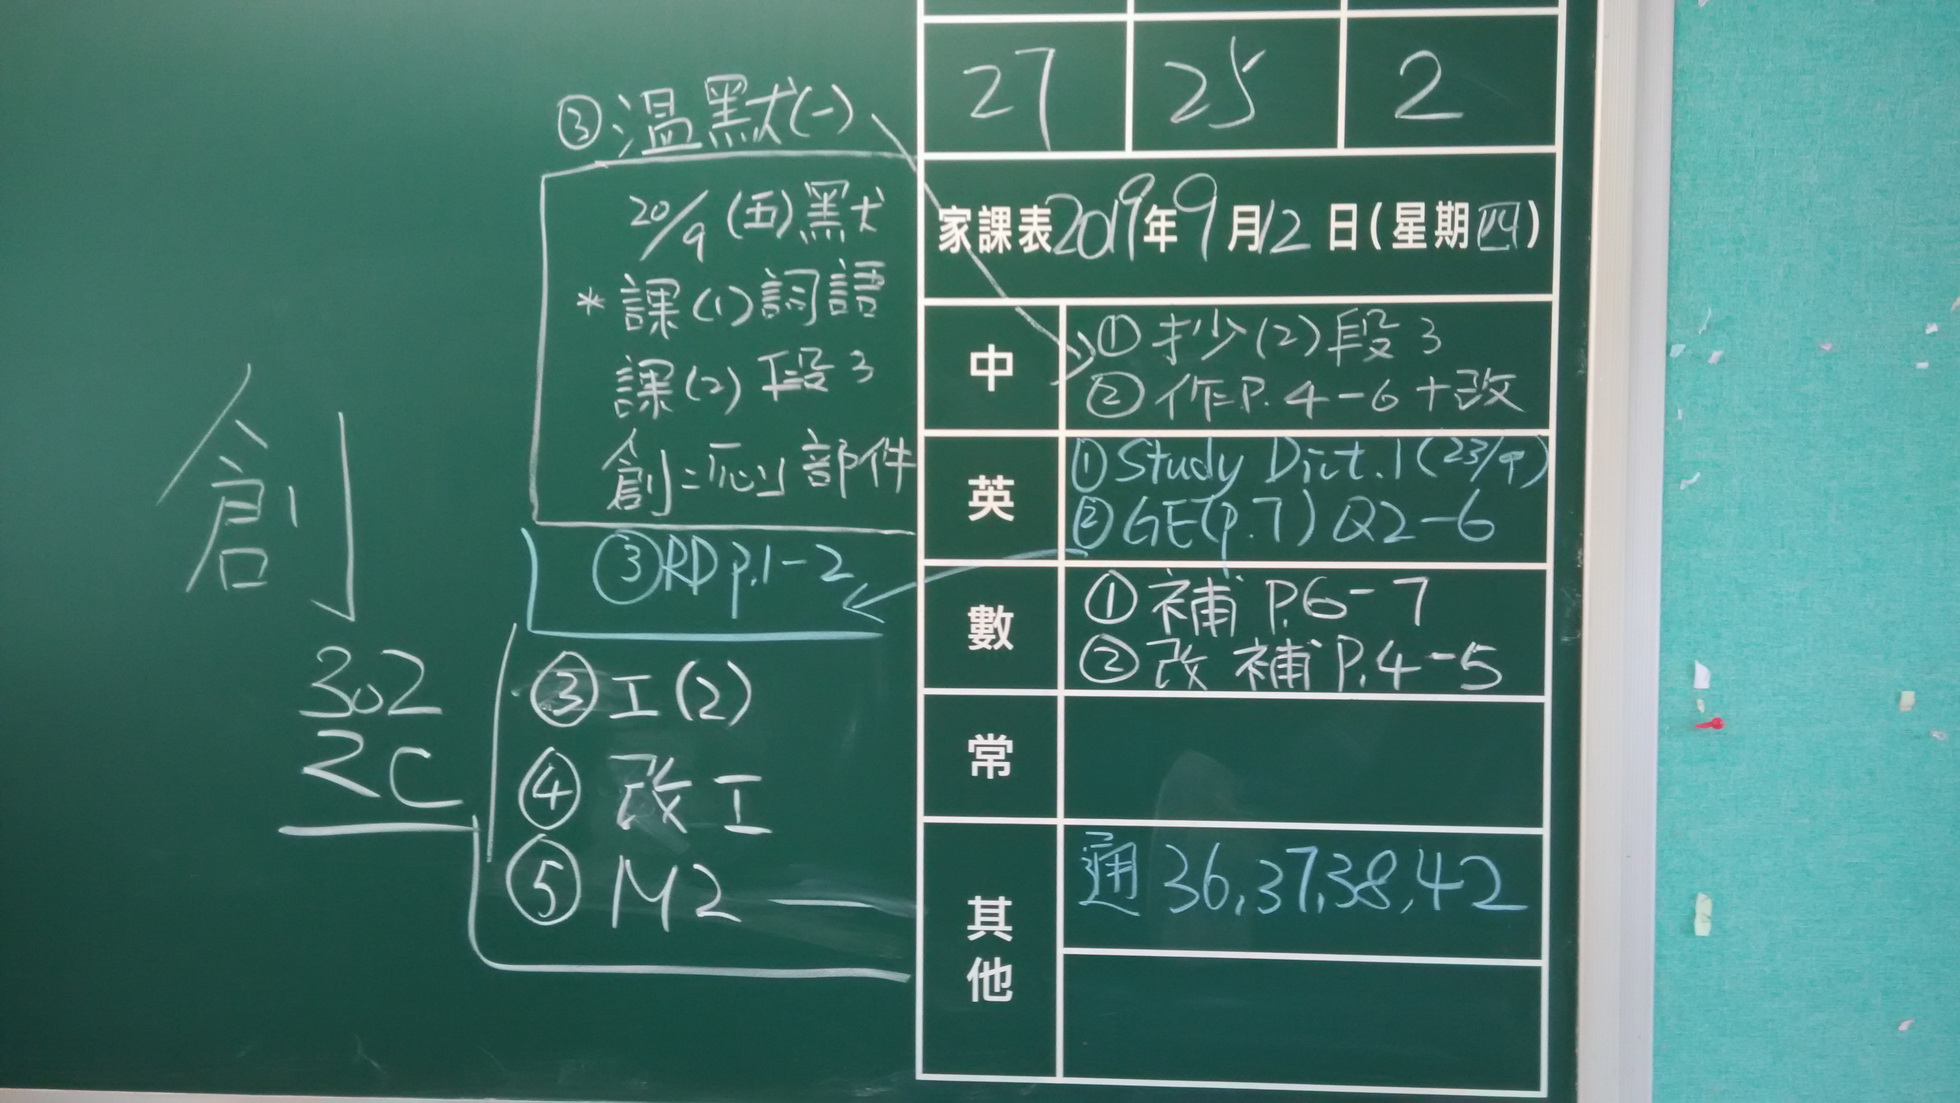 27 25 2
家課表2019年9月12日(星期四)
中
① 抄(2)段3
② 作P.4-6+改
③ 溫默(一)
20/9 (五) 默
*課(1)詞語
課(2)段3
創=心 部件
英
① Study Dict.1 (23/9)
② GE(p.7) Q2-6
③ RD p.1-2
數
① 補 P.6-7
② 改 補 P.4-5
③ 工(2)
④ 改工
⑤ M2
常
其他
通 36,37,38,42
創
302
2C